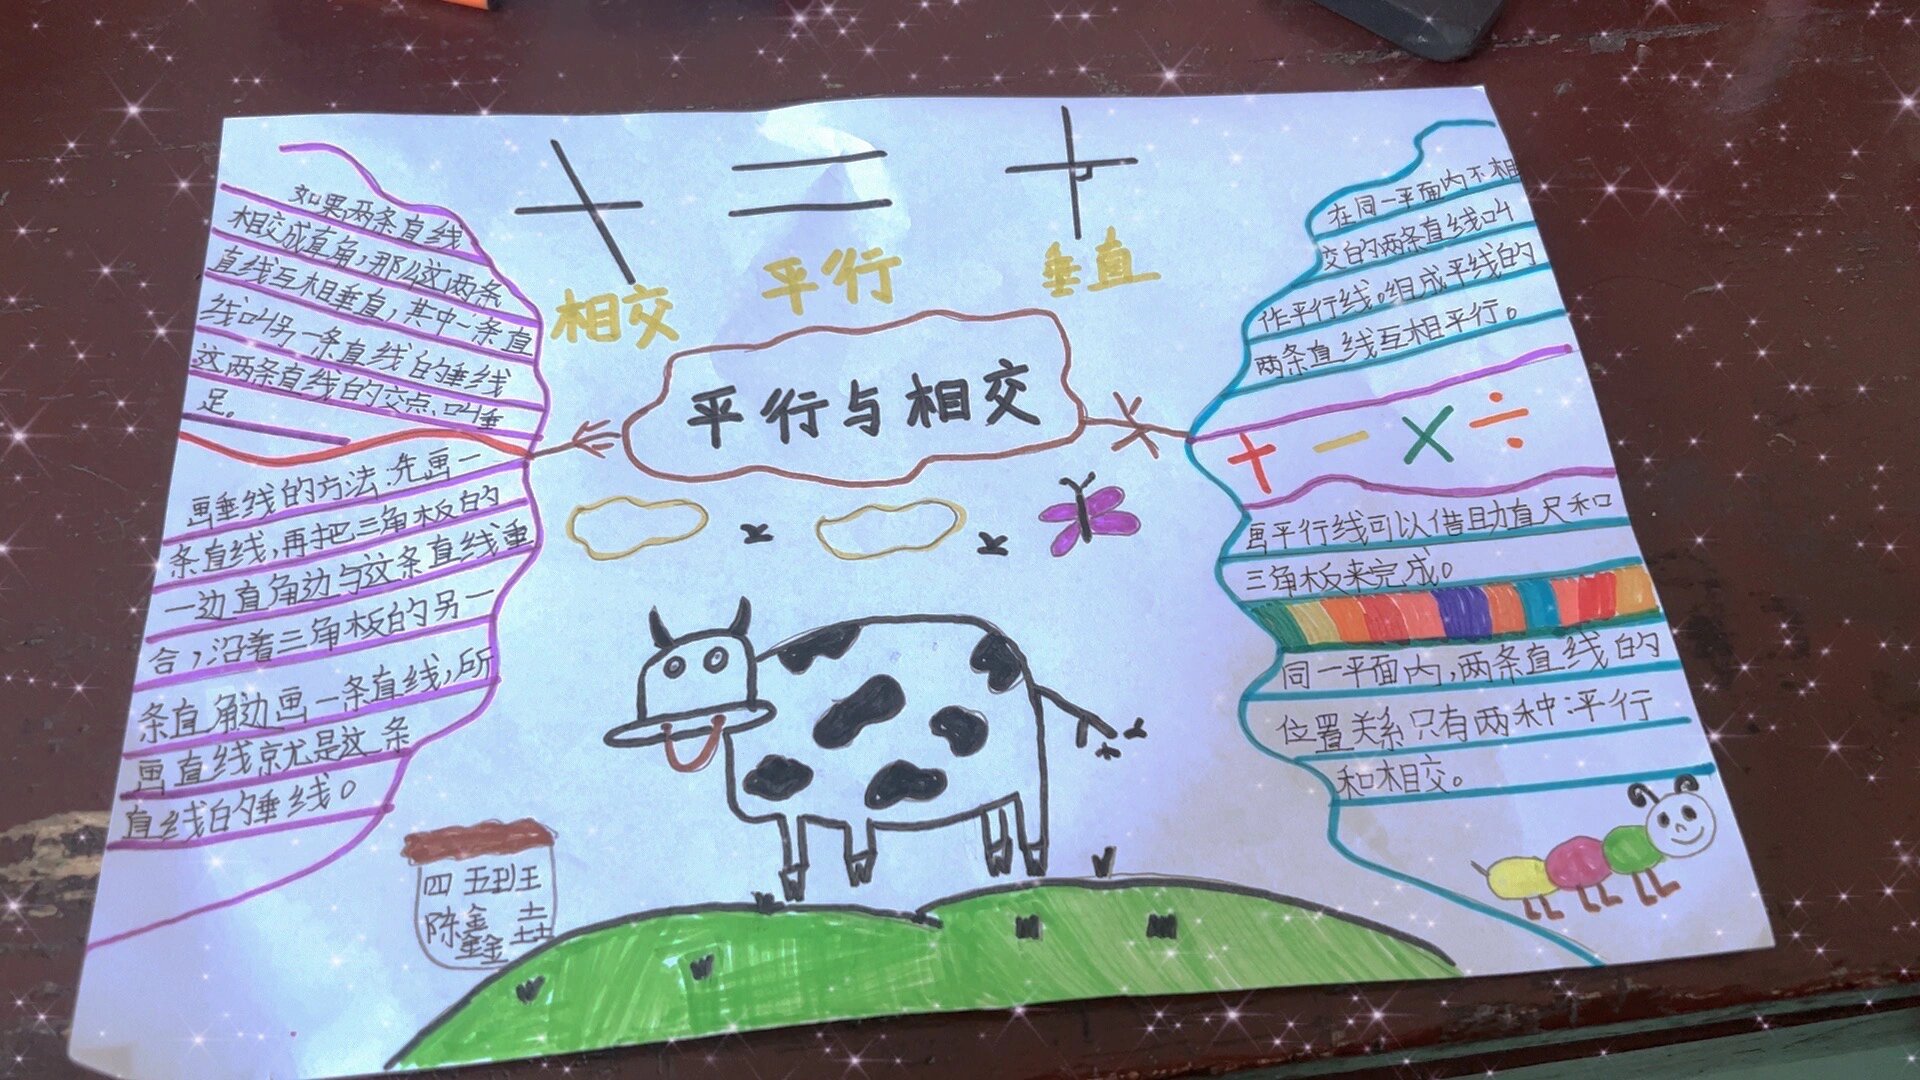 相交
平行
垂直
平行与相交
如果两条直线
相交成直角,那么这两条
直线互相垂直,其中一条直
线叫另一条直线的垂线
这两条直线的交点叫垂
足。
画垂线的方法:先画一
条直线,再把三角板的
一边直角边与这条直线重
合,沿着三角板的另一
条直角边画一条直线,所
画直线就是这条
直线的垂线。
四 五班
陈鑫 垚
鑫
在同一平面内不相
交的两条直线叫
作平行线。组成平线的
两条直线互相平行。
+ - × ÷
画平行线可以借助直尺和
三角板来完成。
同一平面内,两条直线的
位置关系只有两种:平行
和相交。